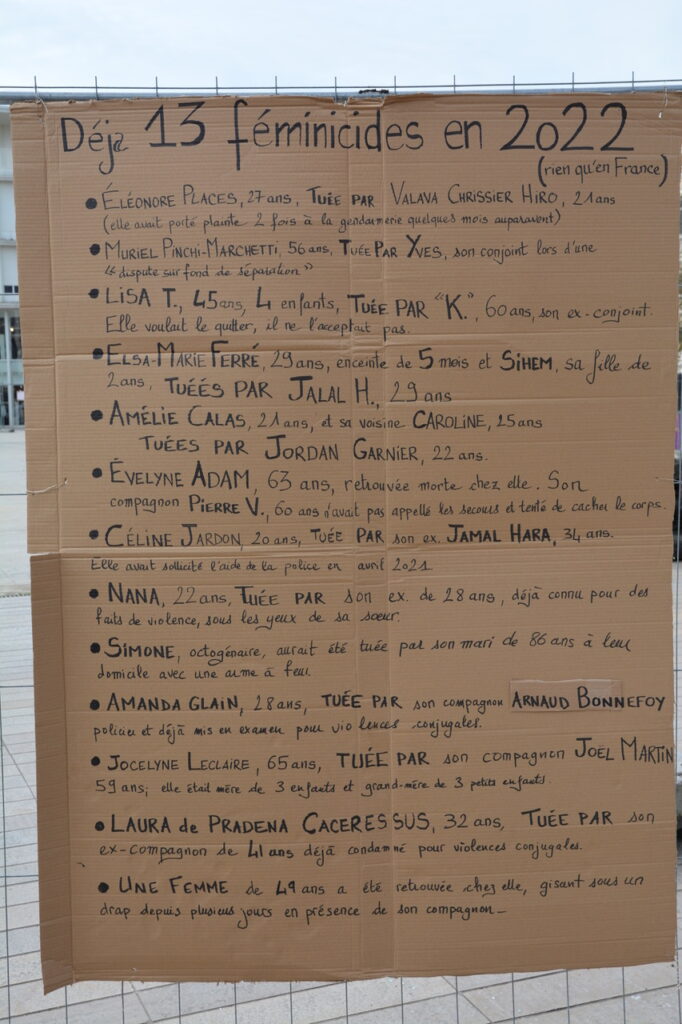 Déjà 13 féminicides en 2022
(rien qu'en France)
• ÉLÉONORE PLACES, 27 ans, TUÉE PAR VALAVA CHRISSIER HIRO, 21 ans
(elle avait porté plainte 2 fois à la gendarmerie quelques mois auparavent)
• MURIEL PINCHI-MARCHETTI, 56 ans, TUÉE PAR YVES, son conjoint lors d'une
"dispute sur fond de séparation"
• LISA T., 45 ans, 4 enfants, TUÉE PAR "K.", 60 ans, son ex-conjoint.
Elle voulait le quitter, il ne l'acceptait pas.
• ELSA-MARIE FERRÉ, 29 ans, enceinte de 5 mois et SIHEM, sa fille de
2 ans, TUÉÉS PAR JALAL H., 29 ans
• AMÉLIE CALAS, 21 ans, et sa voisine CAROLINE, 25 ans
TUÉES PAR JORDAN GARNIER, 22 ans.
• ÉVELYNE ADAM, 63 ans, retrouvée morte chez elle. Son
compagnon PIERRE V., 60 ans n'avait pas appellé les secours et tenté de cacher le corps.
• CÉLINE JARDON, 20 ans, TUÉE PAR son ex. JAMAL HARA, 34 ans.
Elle avait sollicité l'aide de la police en avril 2021.
• NANA, 22 ans, TUÉE PAR son ex. de 28 ans, déjà connu pour des
faits de violence, sous les yeux de sa sœur.
• SIMONE, octogénaire, aurait été tuée par son mari de 86 ans à leur
domicile avec une arme à feu.
• AMANDA GLAIN, 28 ans, TUÉE PAR son compagnon ARNAUD BONNEFOY
policier et déjà mis en examen pour violences conjugales.
• JOCELYNE LECLAIRE, 65 ans, TUÉE PAR son compagnon JOËL MARTIN
59 ans; elle était mère de 3 enfants et grand-mère de 3 petits enfants.
• LAURA de PRADENA CACERESSUS, 32 ans, TUÉE PAR son
ex-compagnon de 41 ans déjà condamné pour violences conjugales.
• UNE FEMME de 49 ans a été retrouvée chez elle, gisant sous un
drap depuis plusieurs jours en présence de son compagnon_